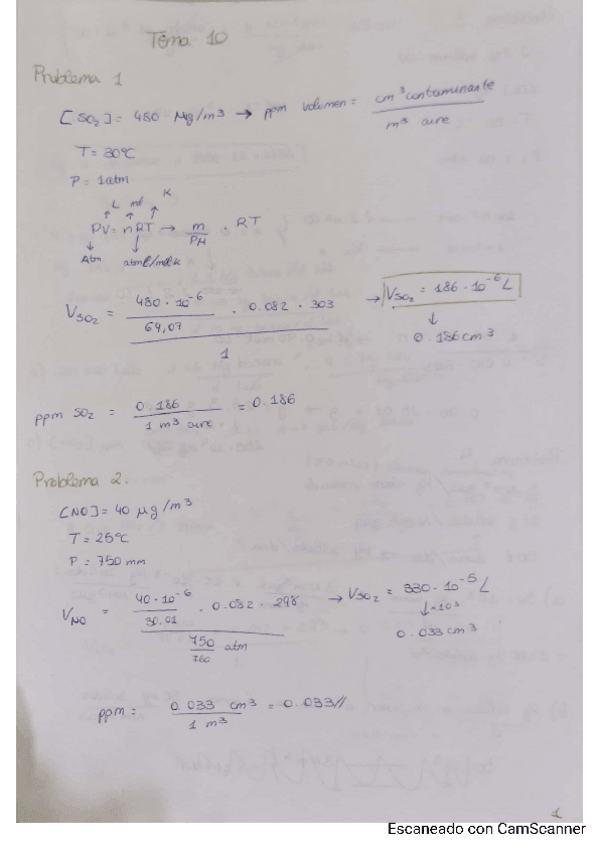 Tema 10
Problema 1
[SO₂] = 480 µg/m³ → ppm volumen = cm³ contaminante / m³ aire
T = 30ºC
P = 1atm
L mol K
PV = nRT → m/PM · RT
Atm atml/molk
V_SO₂ = ((480 · 10⁻⁶ / 64,07) · 0.082 · 303) / 1 → V_SO₂ = 186 · 10⁻⁶ L
↓
0.186 cm³
ppm SO₂ = 0.186 / 1 m³ aire = 0.186
Problema 2.
[NO] = 40 µg/m³
T = 25ºC
P = 750 mm
V_NO = ((40 · 10⁻⁶ / 30.01) · 0.082 · 298) / (750/760 atm) → V_SO₂ = 330 · 10⁻⁵ L
↓ ×10³
0.033 cm³
ppm = 0.033 cm³ / 1 m³ = 0.033//
1
Escaneado con CamScanner